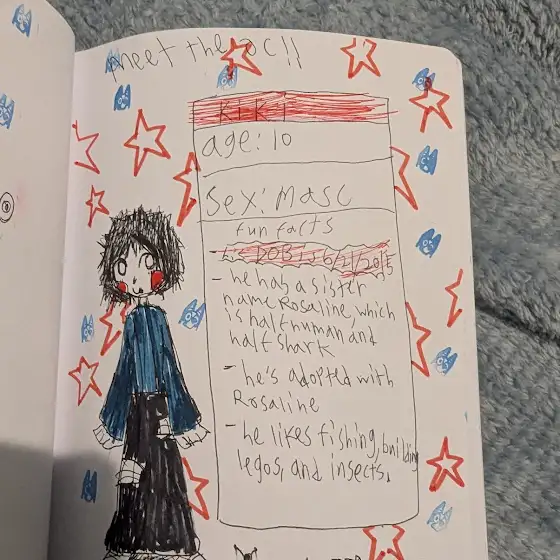 meet the oc!!
KiKi
age: 10
sex: masc
fun facts
- DOB is 6/21/2015
- he has a sister
name Rosaline, which
is half human and
half shark
- he's adopted with
Rosaline
- he likes fishing, building
legos, and insects.